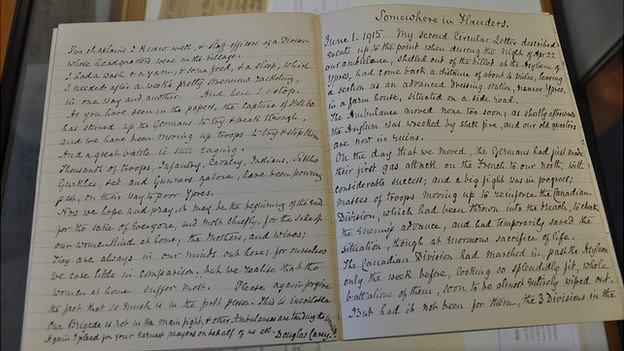 Two chaplains I knew well, & staff officers of a Division
whose headquarters were in the village.
I had a wash & a yarn, & some food, & a sleep, which
I needed after a week's pretty strenuous racketing,
in one way and another. And here I stop.
As you have seen in the papers, the capture of Hill 60
has stirred up the Germans to try & break through,
and we have been moving up troops to try & stop them
And a great battle is still raging.
Thousands of troops, Infantry, Cavalry, Indians, Sikhs
Ghurkhas, &ct and Gunners galore, have been pouring
past, on their way to poor Ypres.
Now we hope and pray, it may be the beginning of the end
for the sake of everyone, and most chiefly, for the sake of
our womenkind at home; the Mothers, and wives;
They are always in our minds out here; for ourselves
we care little in comparison, but we realise that the
women at home suffer most. Please again forgive
the fact that so much is in the first person. This is inevitable
Our Brigade is not in the main fight, & other Ambulances are tending the
Again I plead for your earnest prayers on behalf of us all. Douglas Carey.
Somewhere in Flanders.
June 1. 1915. My second Circular Letter described
events up to the point when during the night of Apr. 22
our ambulance, shelled out of the billet at the Asylum of
Ypres, had come back a distance of about 4 miles, leaving
a section as an advanced dressing station, nearer Ypres,
in a farm house, situated on a side road.
The Ambulance moved none too soon, as shortly afterwards
the Asylum was wrecked by shell fire, and our old quarters
are now in ruins.
On the day that we moved, the Germans had just made
their first gas attack on the French to our north, with
considerable success; and a big fight was in progress;
masses of troops moving up to reinforce the Canadian
Division, which had been thrown into the breach, to check
the enemy advance, and had temporarily saved the
situation, though at enormous sacrifice of life.
The Canadian Division had marched in, past the Asylum
only the week before, looking so splendidly fit, whole
battalions of them, soon to be almost entirely wiped out.
But had it not been for them, the 3 Divisions in the